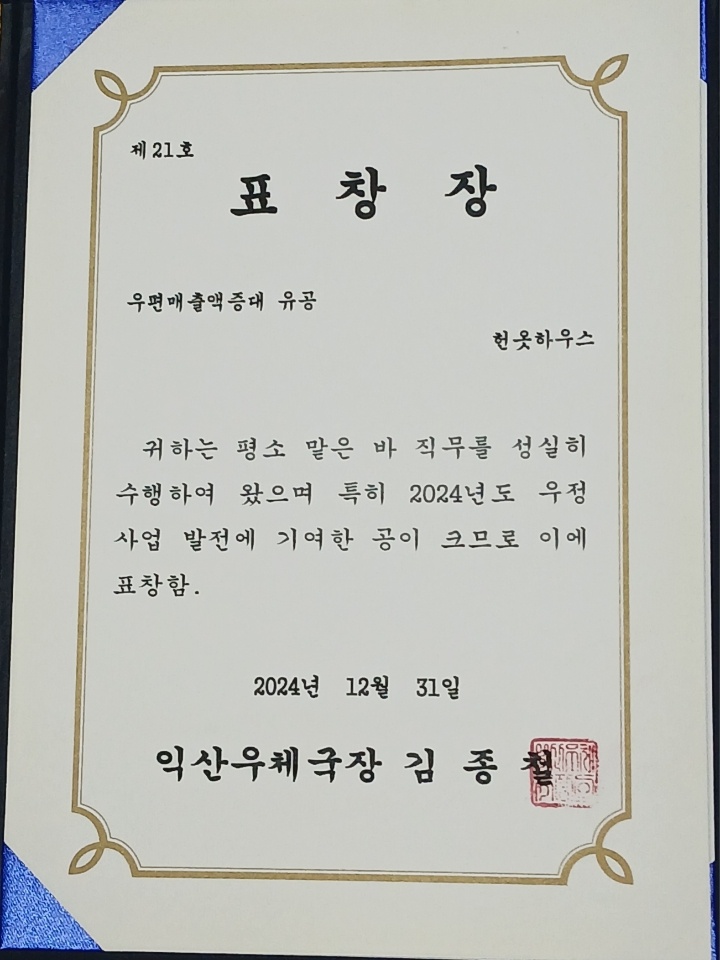 제21호
표 창 장
우편매출액증대 유공
헌옷하우스
귀하는 평소 맡은 바 직무를 성실히
수행하여 왔으며 특히 2024년도 우정
사업 발전에 기여한 공이 크므로 이에
표창함.
2024년 12월 31일
익산우체국장 김 종 철